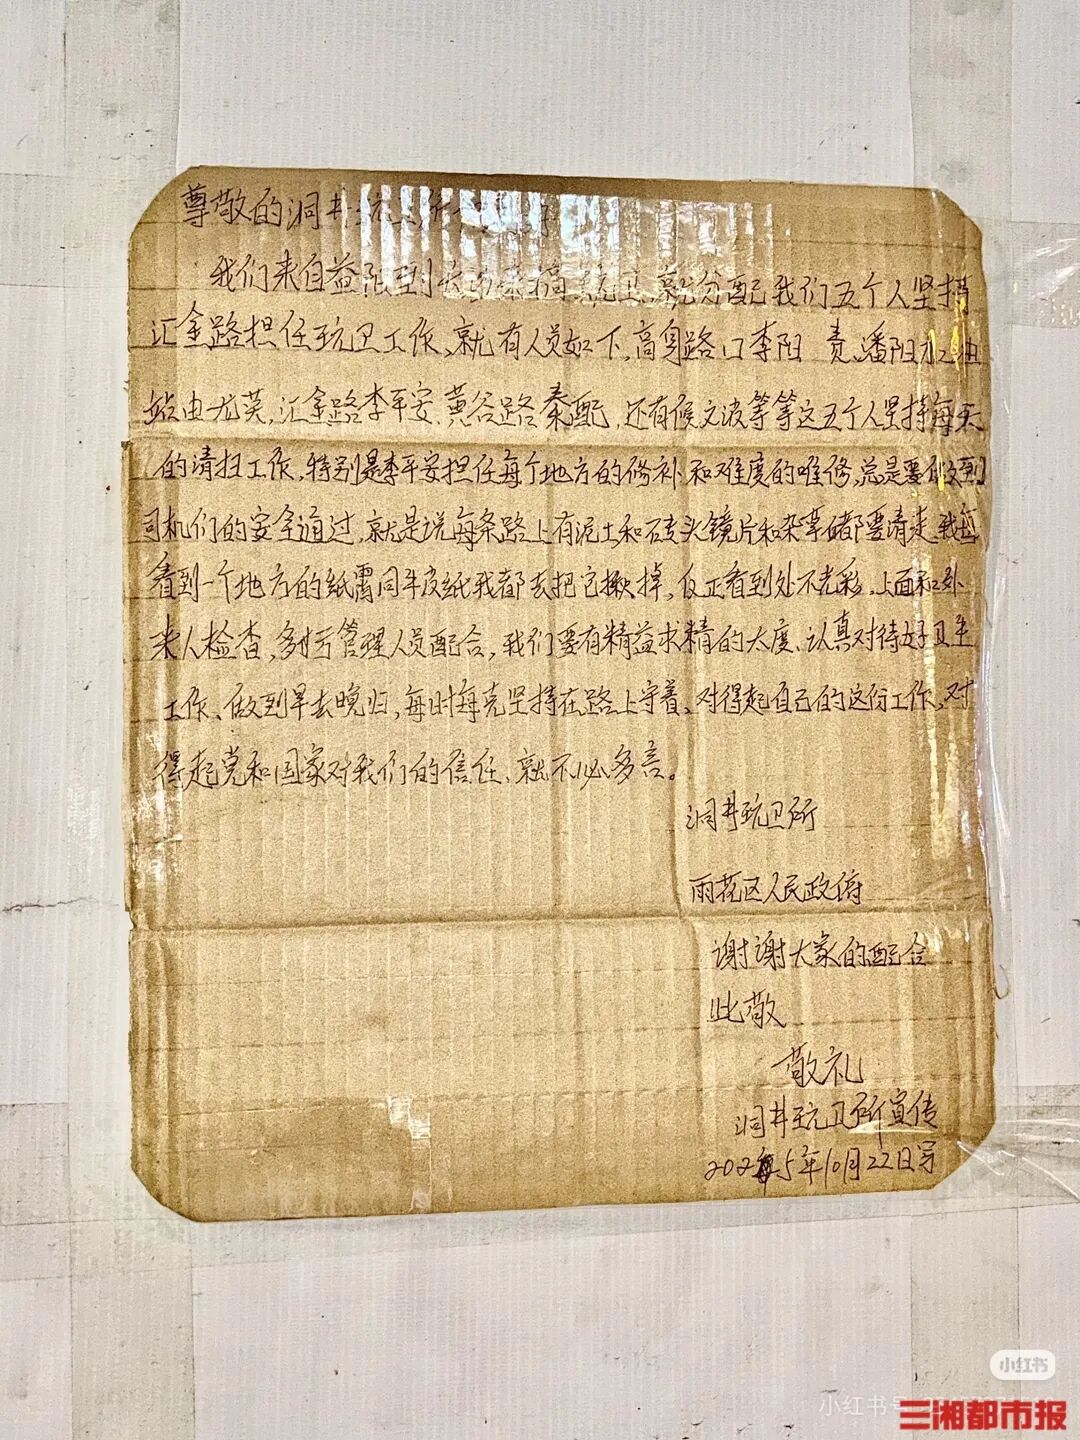 尊敬的洞井
我们来自益阳到长沙来搞玩卫,就分配我们五个人坚持
汇金路担任玩卫工作、就有人员如下,高身路口李阳 责、潘阳加油
站由尤英,汇金路李平安、黄谷路秦配,还有候文波等等这五个人坚持每天
的请扫工作,特别是李平安担任每个地方的修补和难度的唯修,总是要做到
司机们的安全通过,就是说每条路上有泥土和砖头镜片和杂草都要请走,我
看到一个地方的纸需同牛皮纸我都去把它揪掉,反正看到处不光彩,上面和外
来人检查,多亏管理人员配合,我们要有精益求精的太度、认真对待好卫生
工作、做到早去晚归,每时每克坚持在路上守着、对得起自己的这份工作,对
得起党和国家对我们的信任、就不必多言。
洞井玩卫所
雨花区人民政府
谢谢大家的配合
此敬
敬礼
洞井玩卫所宣传
2025年10月22日写
小红书
小红书号
三湘都市报